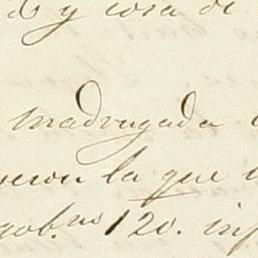 y cosa de
madrugada
la que
gob.ⁿᵒˢ 120. inf